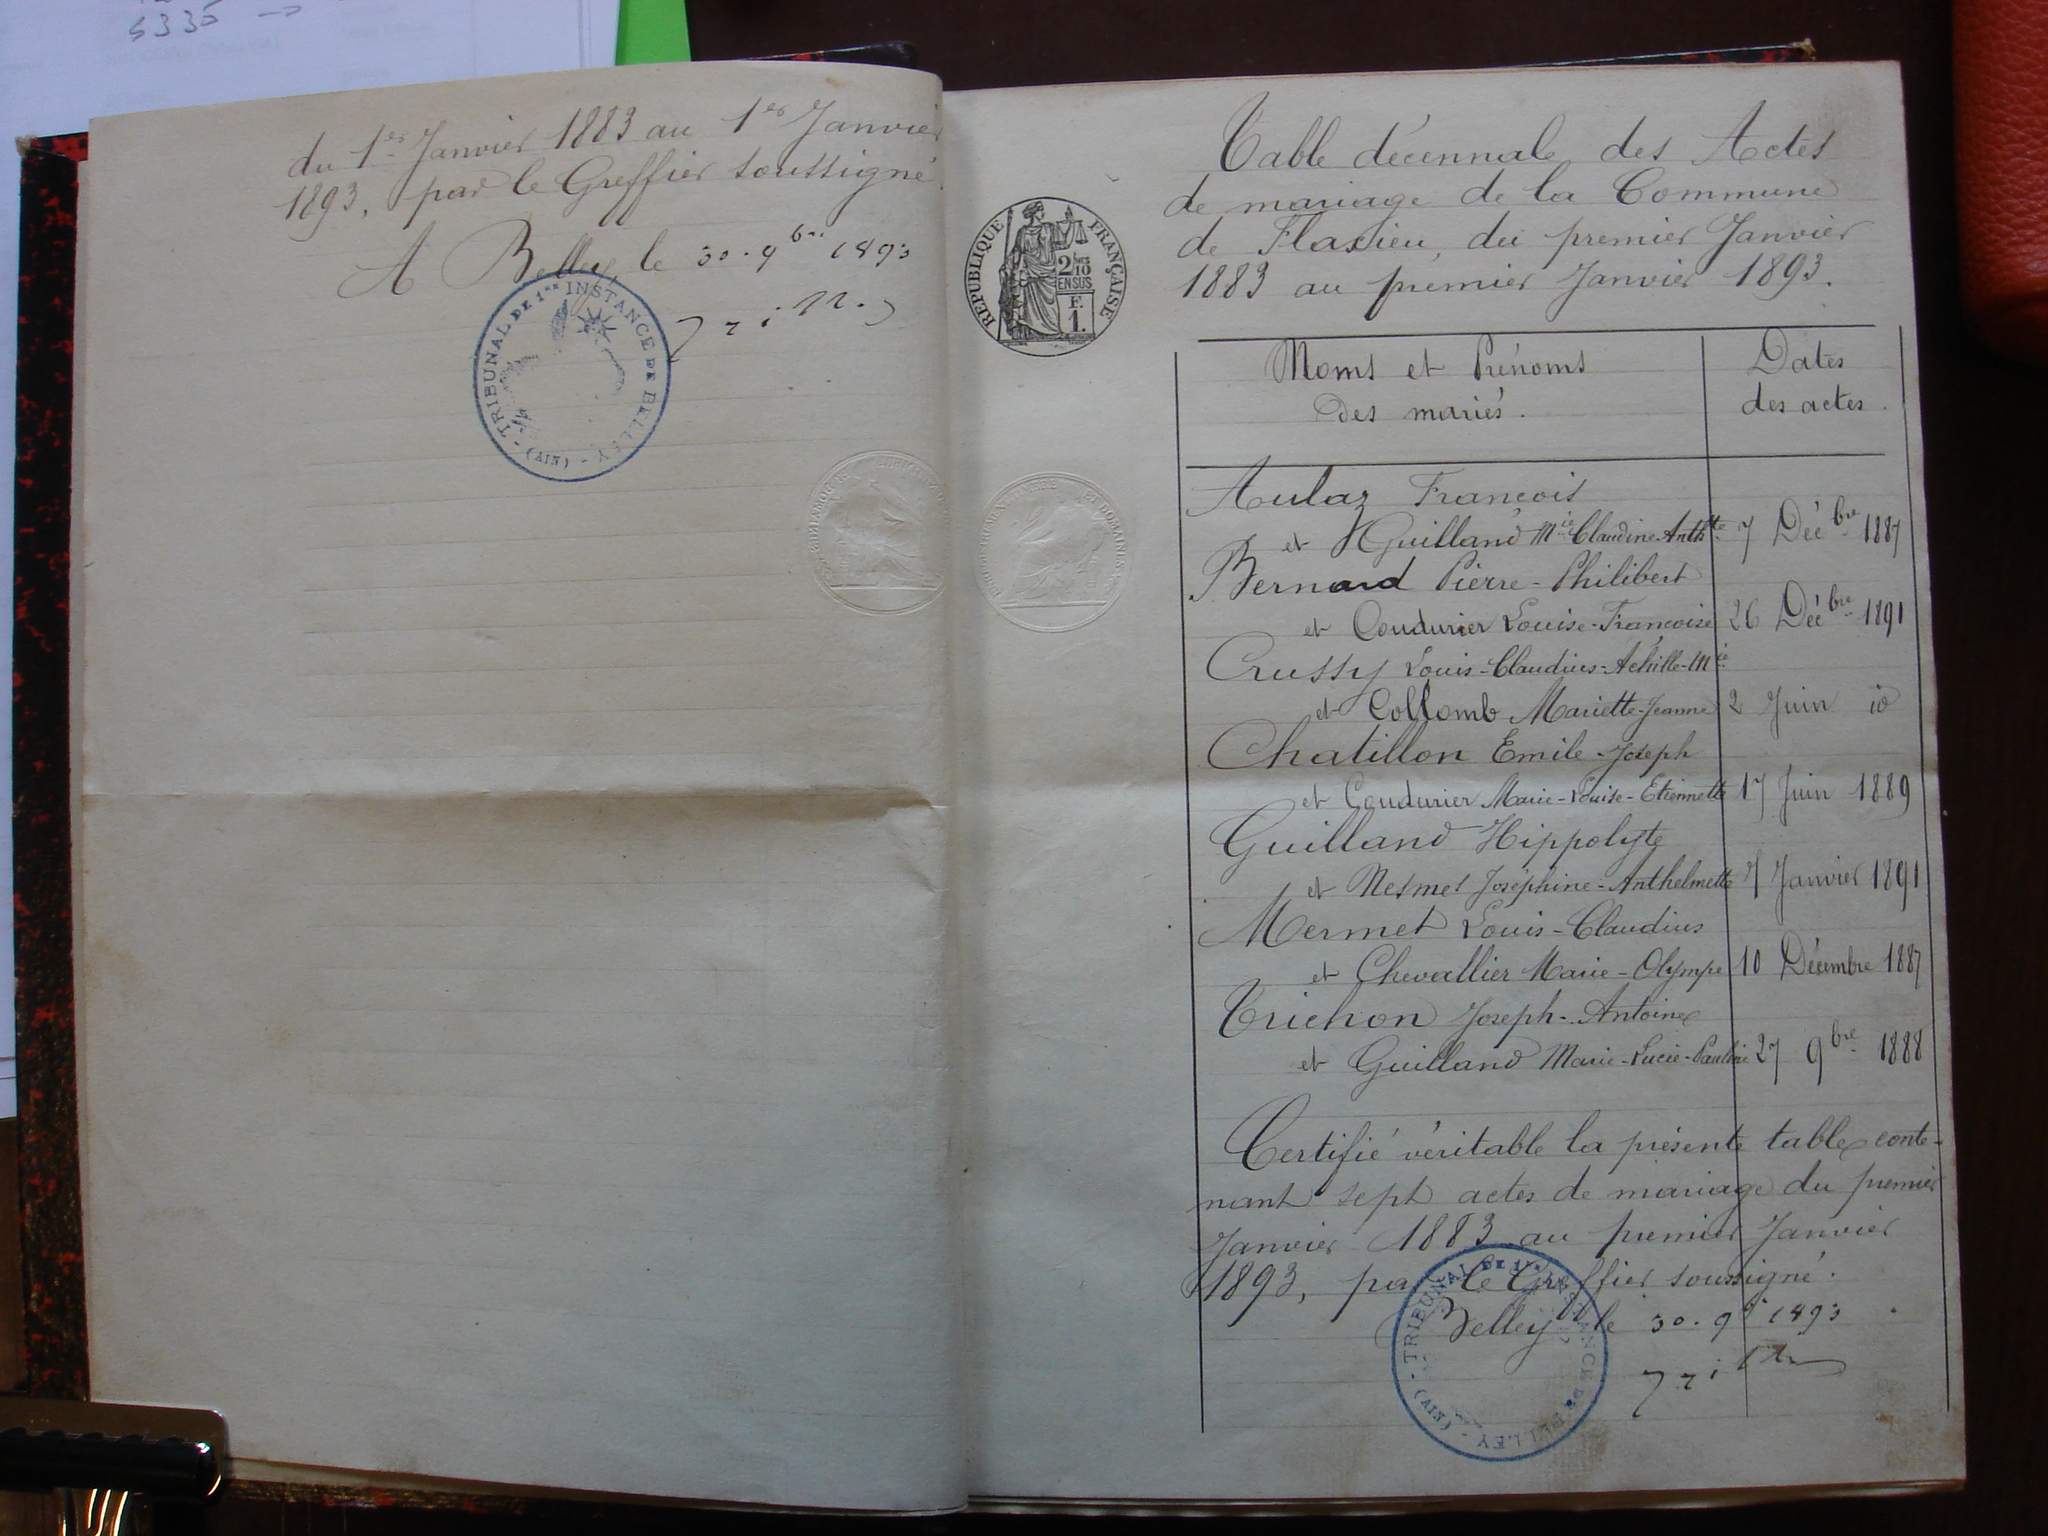 5335 →
du 1er Janvier 1883 au 1er Janvier
1893, par le Greffier soussigné.
A Belley, le 30. 9bre 1893
TRIBUNAL DE 1re INSTANCE DE BELLEY
(AIN)
RÉPUBLIQUE FRANÇAISE
2/10
EN SUS
F.
1.
Table décennale des Actes
de mariage de la Commune
de Flaxieu, du premier Janvier
1883 au premier Janvier 1893.
Noms et Prénoms
des mariés.
Dates
des actes.
Aulaz François
et Guilland Mie Claudine Anthte 7 Décbre 1887
Bernard Pierre-Philibert
et Coudurier Louise-Françoise 26 Décbre 1891
Crussy Louis-Claudius-Achille-Mie
et Collomb Mariette-Jeanne 2 Juin id
Chatillon Emile-Joseph
et Coudurier Marie-Louise-Etiennette 17 Juin 1889
Guilland Hippolyte
et Nesmes Joséphine-Anthelmette 7 Janvier 1891
Mermet Louis-Claudius
et Chevallier Marie-Olympe 10 Décembre 1887
Trichon Joseph-Antoine
et Guilland Marie-Lucie-Pauline 27 9bre 1888
Certifié véritable la présente table conte-
nant sept actes de mariage du premier
Janvier 1883 au premier Janvier
1893, par le Greffier soussigné.
Belley le 30. 9b 1893
TRIBUNAL DE 1re INSTANCE DE BELLEY
(AIN)